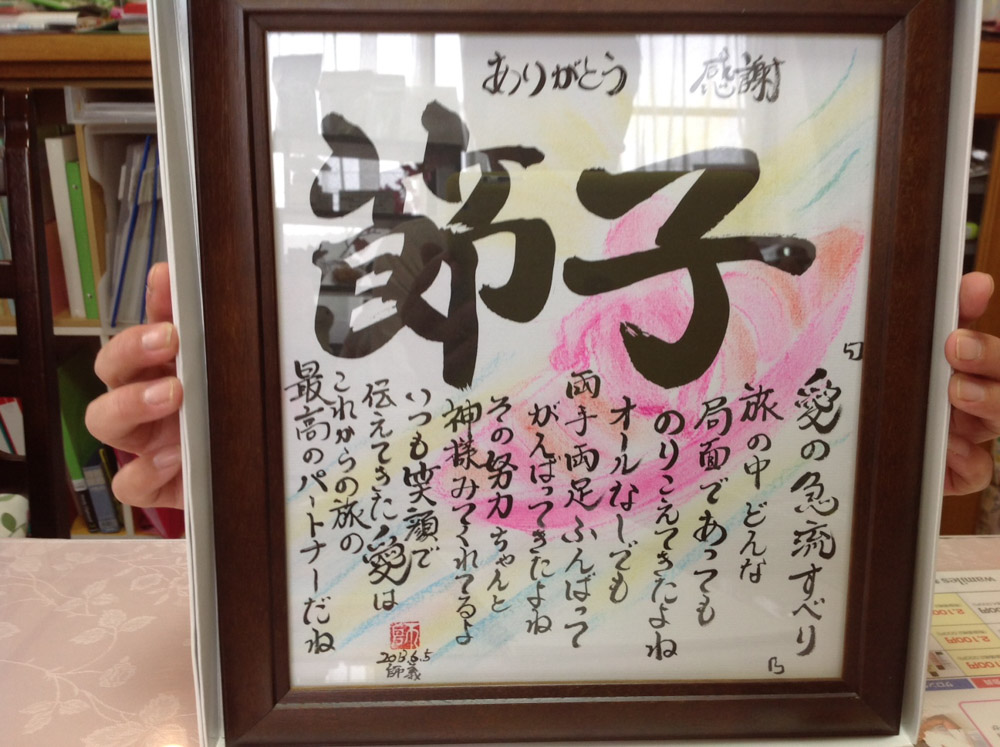 ありがとう 感謝
節子
「愛の急流すべり」
旅の中どんな
局面であっても
のりこえてきたよね
オールなしでも
両手両足ふんばって
がんばってきたよね
その努力ちゃんと
神様みてくれてるよ
いつも笑顔で
伝えてきた愛は
これからの旅の
最高のパートナーだね
2013.6.5
師義
wamiles
2,100円